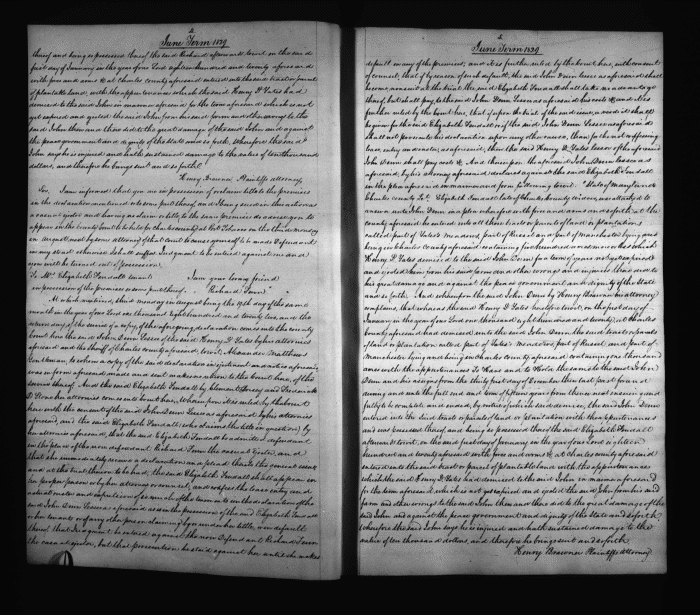 &
June Term 1829
thereof and being so possessed thereof the said Richard afterwards towit on the said
first day of January in the year of our Lord eighteen hundred and twenty aforesaid
with force and arms &c at Charles county aforesaid entered into the said tract or parcel
of plantable land, with the appurtenances which the said Henry P. Yates had
demised to the said John in manner aforesaid for the term aforesaid which is not
yet expired and ejected the said John from his said farm and other wrongs to the
said John then and there did to the great damage of the said John and against
the peace government and dignity of the state and so forth, Wherefore the said
John says he is injured and hath sustained damage to the value of ten thousand
dollars, and therefore he brings suit and so forth.
Henry Brawner Plaintiffs attorney
I am informed that you are in possession of or claim title to the premises
in the declaration mentioned or to some part thereof, and I being sued in this action as
a casual ejector and having no claim or title to the same premises do advise you to
appear on the county court to be held for Charles county at Port Tobacco on the third monday
in august next, by some attorney of that court to cause yourself to be made Defendant
in my stead otherwise I shall suffer Judgment to be entered against me and
you will be turned out of possession.
To Mrs. Elizabeth Fendall tenant I am your loving friend
in possession of the premises or some part thereof. Richard Fenn
At which said third monday in august being the 19th day of the same
month in the year of our Lord one thousand eight hundred and twenty two, and the
return day of the service of a copy of the aforegoing declaration comes into the county
court here the said John Denn Lessee of the said Henry P. Yates by his attorney
aforesaid and the Sheriff of Charles county aforesaid towit, Alexander Matthews
Gentleman, to whom a copy of the said declaration in ejectment and notice aforesaid
was in form aforesaid made and sent makes return to the court here, of the
service thereof. And the said Elizabeth Fendall by Clement Dorsey and Frederick
Stone her attornies comes into court here, whereupon it is ruled by the court
here with the consent of the said John Denn Lessee as aforesaid by his attornies
aforesaid, and the said Elizabeth Fendall, (who claims the title in question) by
her attornies aforesaid, that the said Elizabeth Fendall be admitted defendant
in the place of the now defendant Richard Fenn the casual ejector, and
that she immediately receive a declaration and plead thereto the general issue
and at the trial thereon to be had, the said Elizabeth Fendall shall appear in
her proper person or by her attorney or counsel, and confess the lease entry and
actual ouster and
John Denn Lessee as aforesaid
the casual ejector, but that prosecution be staid against her until she makes
&
June Term 1829
default in any of the premises; and it is further ruled by the court here, with consent
of counsel, that if by reason of such default, the said John Denn Lessee as aforesaid shall
become nonsuit at the trial the said Elizabeth Fendall shall take no advantage
thereof, but shall pay to the said John Denn Lessee as aforesaid his costs &c and it is
further ruled by the court here, that if upon the trial of the said issue, a verdict shall
be given for the said Elizabeth Fendall, or if the said John Denn Lessee as aforesaid
shall not prosecute his declaration upon any other cause, than for the not confessing
lease, entry and ouster, as aforesaid, then the said Henry P. Yates lessor of the aforesaid
John Denn shall pay costs &c. And thereupon the aforesaid John Denn Lessee as
aforesaid, by his attorney aforesaid declares against the said Elizabeth Fendall
in the plea aforesaid in manner and form following towit. "State of Maryland
Charles County Sc. Elizabeth Fendall late of Charles County widow, was attached to
answer unto John Denn in a plea wherefore with force and arms and so forth at the
county aforesaid he entered into all those tracts or parcels of land or plantations
called part of Yates's Meadows, part of Russel and Part of Manchester lying and
being in Charles County aforesaid containing five hundred acres more or less which
Henry P. Yates demised to the said John Denn for a term of years not yet expired
and ejected from his said farm and other wrongs and injuries then did to
his great damage and against the peace government and dignity of the State
and so forth. And whereupon the said John Denn by Henry Brawner his attorney
complains, that whereas the said Henry P. Yates heretofore towit, on the first day of
January in the year our Lord one thousand eight hundred and twenty at Charles
county aforesaid had demised unto the said John Denn the said tracts or parcels
of land or plantation called part of Yates's Meadows, part of Russel and part of
Manchester lying and being in Charles county aforesaid containing one thousand
acres with the appurtenances To Have and to Hold the same to the said John
Denn and his assigns from the thirty first day of December then last past for and
during and unto the full end and term of fifteen years from thence next ensuing and
fully to be complete and ended, by virtue of which said demise, the said John Denn
entered into the said tract or parcel of land or plantation with the appurtenances
and was possessed thereof and being so possessed thereof the said Elizabeth Fendall
afterwards towit, on the said first day of January in the year of our Lord eighteen
hundred and twenty aforesaid with force and arms &c at Charles county aforesaid
entered into the said tract or parcel of plantable land with the appurtenances
which the said Henry P. Yates had demised to the said John in manner aforesaid
for the term aforesaid, which is not yet expired and ejected the said John from his said
farm and other wrongs to the said John then and there did to the great damage of the
said John and against the peace government and dignity of the State and so forth.
Wherefore the said John says he is injured and hath sustained damage to the
value of ten thousand dollars, and therefore he brings suit and so forth
Henry Brawner Plaintiffs attorney